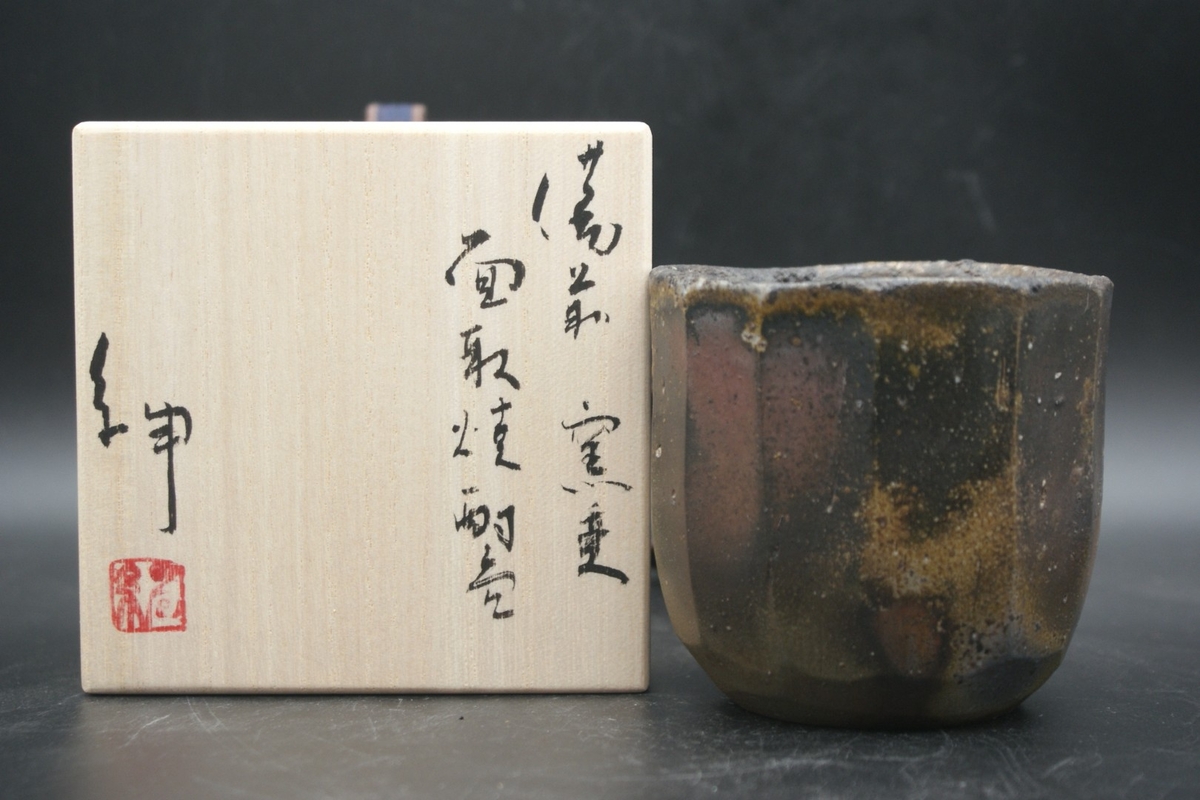 備前 窯変
面取焼酎呑
紳